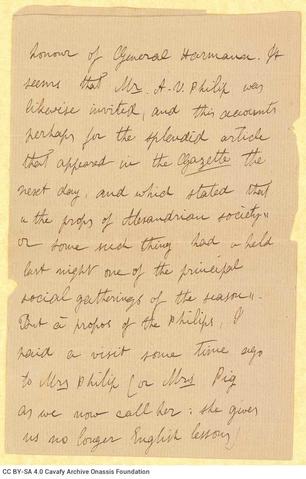 honour of General Harmann. It
seems that Mr. A. V. Philip was
likewise invited, and this accounts
perhaps for the splendid article
that appeared in the Gazette the
next day, and which stated that
"the props of Alexandrian society"
or some such thing had "held
last night one of the principal
social gatherings of the season".
But à propos of the Philips, I
paid a visit some time ago
to Mrs Philip (or Mrs Pig
as we now call her: she gives
us no longer English lessons)
CC BY-SA 4.0 Cavafy Archive Onassis Foundation